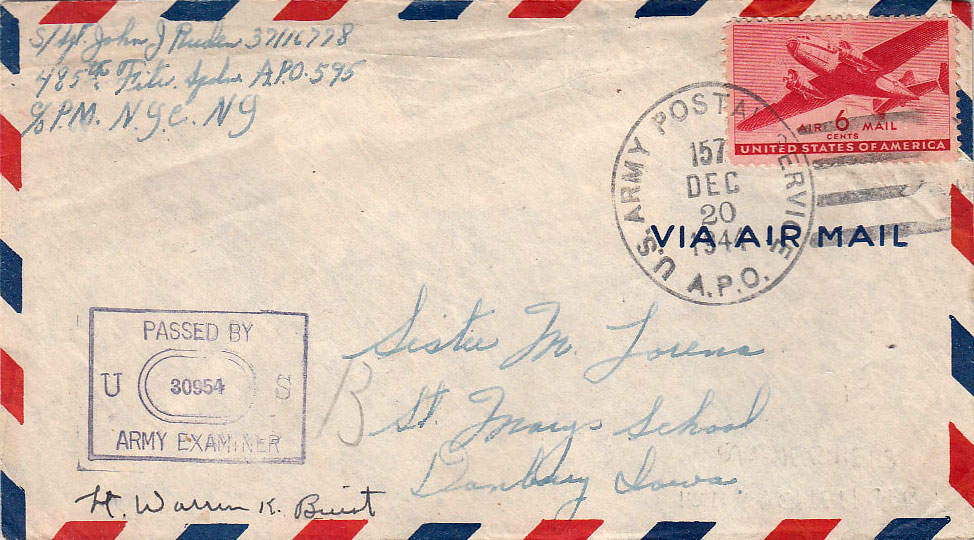 S/Sgt. John J Ruden 37116778
485th Ftr. Sqdn. A.P.O. 595
c/o P.M. N.Y.C. N.Y
AIR 6 MAIL
CENTS
UNITED STATES OF AMERICA
U.S. ARMY POSTAL SERVICE
157
DEC
20
1944
A.P.O.
VIA AIR MAIL
PASSED BY
U 30954 S
ARMY EXAMINER
Sister M. Lorena
B St. Marys School
Danbury Iowa
H. Warren K.